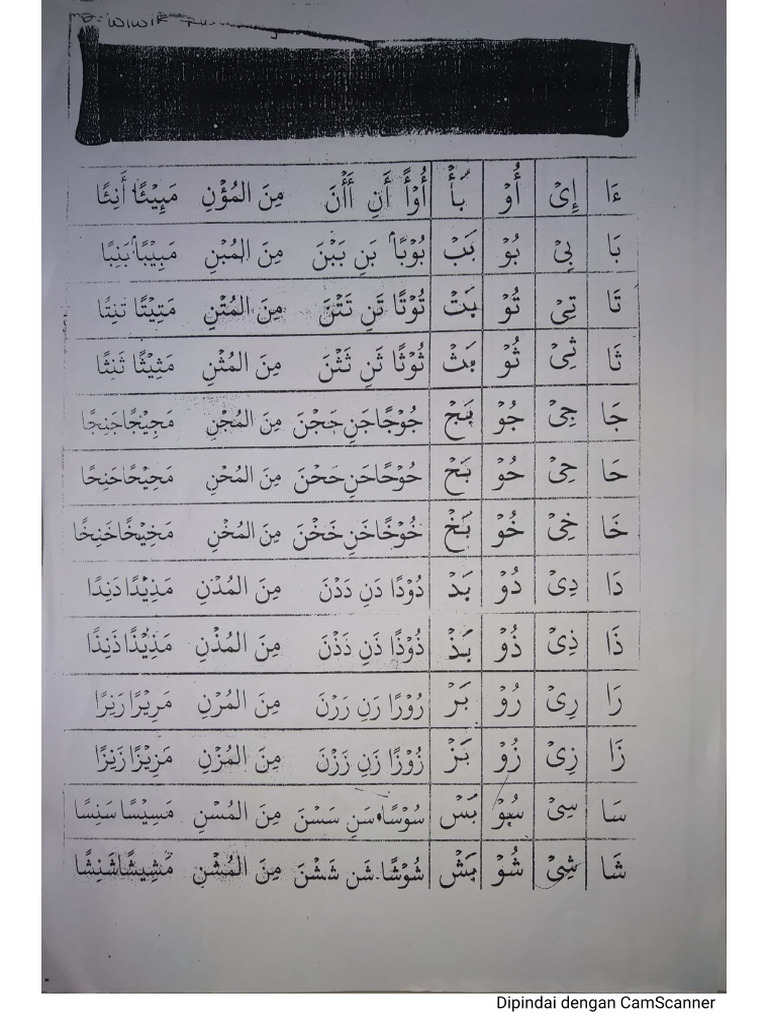 WIWIK
ءَا إِىْ أُوْ بَأْ أُوْأً أَنِ أَأْنَ مِنَ الْمُؤْنِ مَيِيْئًا أَنِئًا
بَا بِىْ بُوْ بَبْ بُوْبًا بَنِ بَبْنَ مِنَ الْمُبْنِ مَبِيْبًا بَنِبًا
تَا تِىْ تُوْ بَتْ تُوْتًا تَنِ تَتْنَ مِنَ الْمُتْنِ مَتِيْتًا تَنِتًا
ثَا ثِىْ ثُوْ بَثْ ثُوْثًا ثَنِ ثَثْنَ مِنَ الْمُثْنِ مَثِيْثًا ثَنِثًا
جَا جِىْ جُوْ بَجْ جُوْجًا جَنِ جَجْنَ مِنَ الْمُجْنِ مَجِيْجًا جَنِجًا
حَا حِىْ حُوْ بَحْ حُوْحًا حَنِ حَحْنَ مِنَ الْمُحْنِ مَحِيْحًا حَنِحًا
خَا خِىْ خُوْ بَخْ خُوْخًا خَنِ خَخْنَ مِنَ الْمُخْنِ مَخِيْخًا خَنِخًا
دَا دِىْ دُوْ بَدْ دُوْدًا دَنِ دَدْنَ مِنَ الْمُدْنِ مَدِيْدًا دَنِدًا
ذَا ذِىْ ذُوْ بَذْ ذُوْذًا ذَنِ ذَذْنَ مِنَ الْمُذْنِ مَذِيْذًا ذَنِذًا
رَا رِىْ رُوْ بَرْ رُوْرًا رَنِ رَرْنَ مِنَ الْمُرْنِ مَرِيْرًا رَنِرًا
زَا زِىْ زُوْ بَزْ زُوْزًا زَنِ زَزْنَ مِنَ الْمُزْنِ مَزِيْزًا زَنِزًا
سَا سِىْ سُوْ بَسْ سُوْسًا سَنِ سَسْنَ مِنَ الْمُسْنِ مَسِيْسًا سَنِسًا
شَا شِىْ شُوْ بَشْ شُوْشًا شَنِ شَشْنَ مِنَ الْمُشْنِ مَشِيْشًا شَنِشًا
Dipindai dengan CamScanner